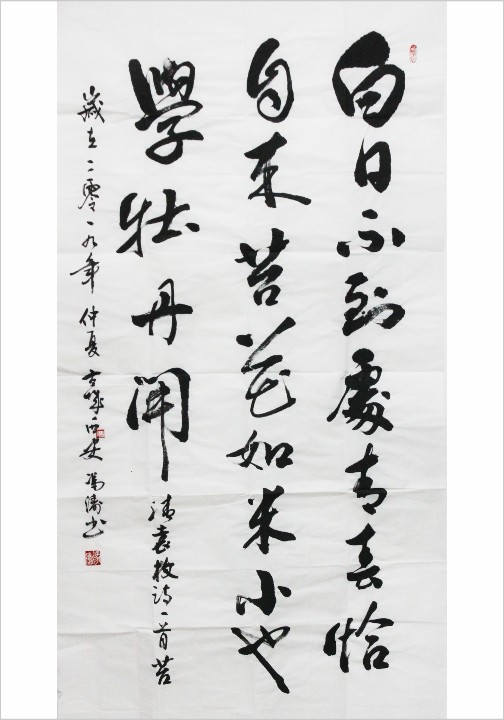 白日不到處青春恰
自來苔花如米小也
學牡丹開
清袁枚詩一首苔
歲在二零一九年仲夏冯涛书